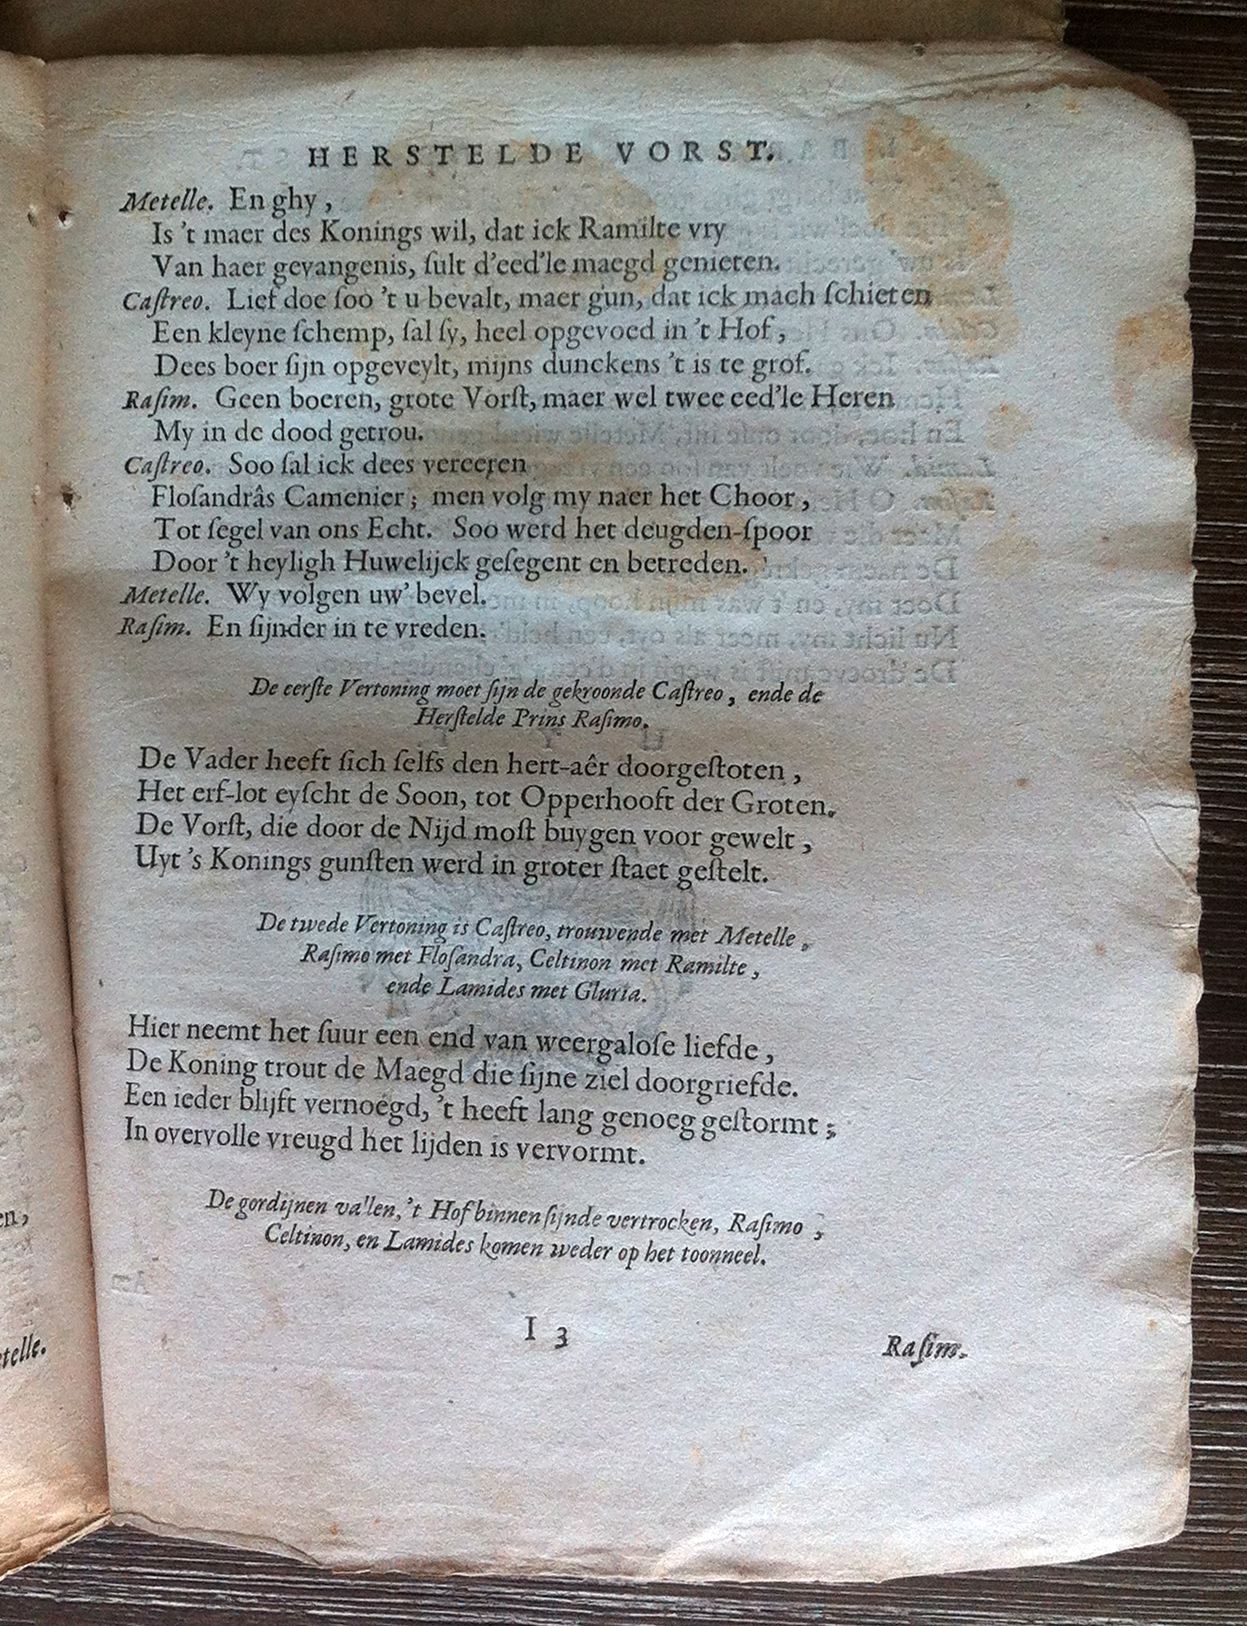 HERSTELDE VORST.
Metelle. En ghy,
Is 't maer des Konings wil, dat ick Ramilte vry
Van haer gevangenis, ſult d'eed'le maegd genieten.
Caſtreo. Lief doe ſoo 't u bevalt, maer gun, dat ick mach ſchieten
Een kleyne ſchemp, ſal ſy, heel opgevoed in 't Hof,
Dees boer ſijn opgeveylt, mijns dunckens 't is te grof.
Raſim. Geen boeren, grote Vorſt, maer wel twee eed'le Heren
My in de dood getrou.
Caſtreo. Soo ſal ick dees vereeren
Floſandrâs Camenier; men volg my naer het Choor,
Tot ſegel van ons Echt. Soo werd het deugden-ſpoor
Door 't heyligh Huwelijck geſegent en betreden.
Metelle. Wy volgen uw' bevel.
Raſim. En ſijnder in te vreden.
De eerſte Vertoning moet ſijn de gekroonde Caſtreo, ende de
Herſtelde Prins Raſimo.
De Vader heeft ſich ſelfs den hert-aêr doorgeſtoten,
Het erf-lot eyſcht de Soon, tot Opperhooft der Groten.
De Vorſt, die door de Nijd moſt buygen voor gewelt,
Uyt 's Konings gunſten werd in groter ſtaet geſtelt.
De twede Vertoning is Caſtreo, trouwende met Metelle,
Raſimo met Floſandra, Celtinon met Ramilte,
ende Lamides met Gluria.
Hier neemt het ſuur een end van weergaloſe liefde,
De Koning trout de Maegd die ſijne ziel doorgriefde.
Een ieder blijft vernoegd, 't heeft lang genoeg geſtormt;
In overvolle vreugd het lijden is vervormt.
De gordijnen vallen, 't Hof binnen ſijnde vertrocken, Raſimo,
Celtinon, en Lamides komen weder op het toonneel.
I 3
Raſim.
en,
telle.